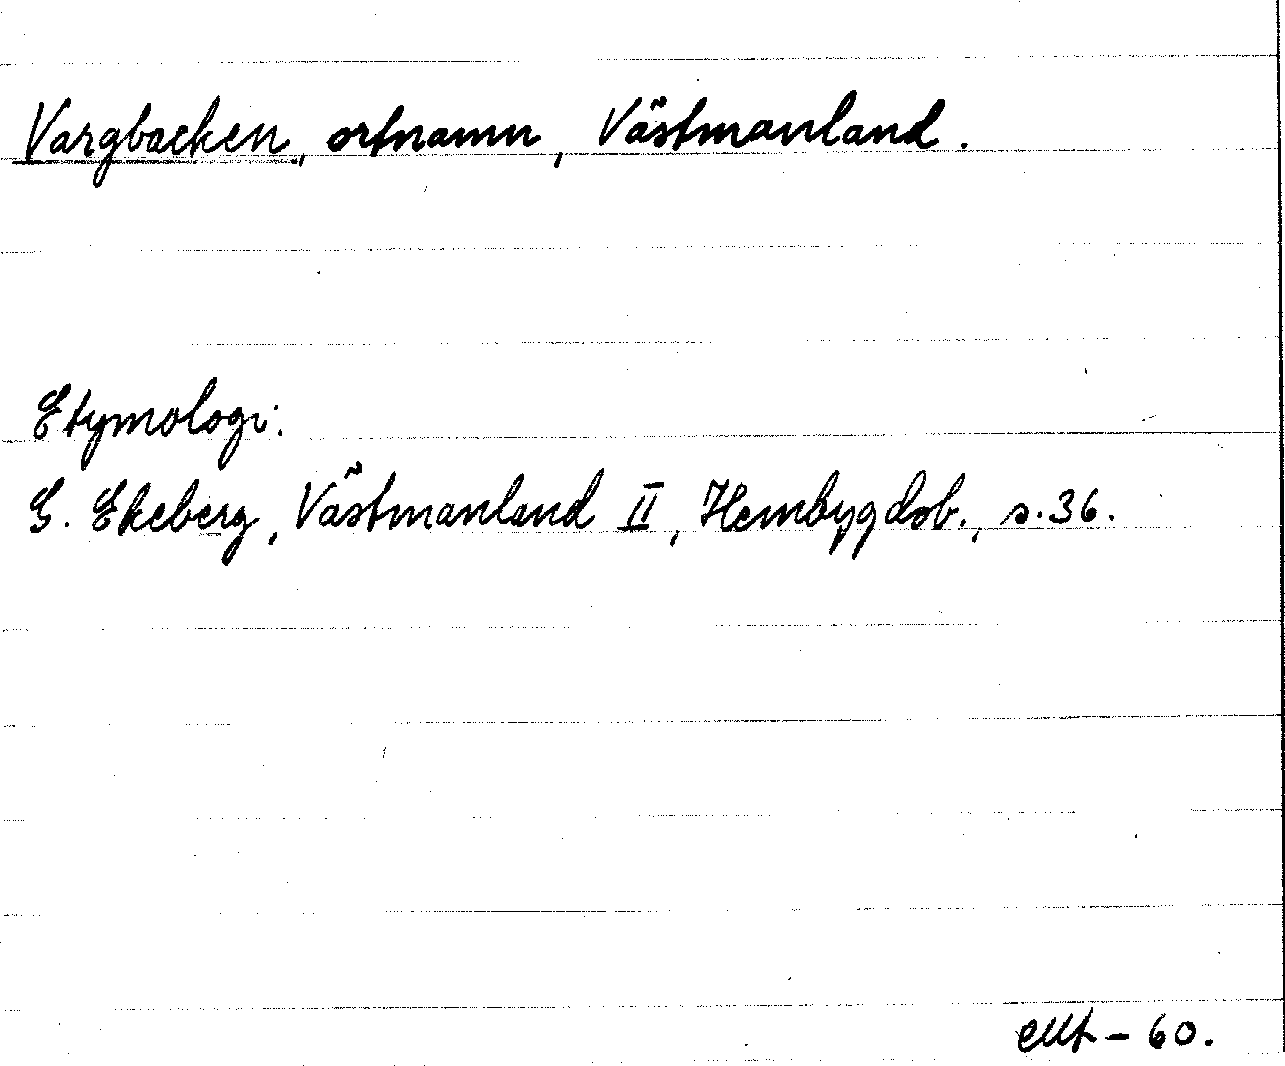 Vargbacken, ortnamn, Västmanland.
Etymologi:
G. Ekeberg, Västmanland II, Hembygdsb., s. 36.
- 60.